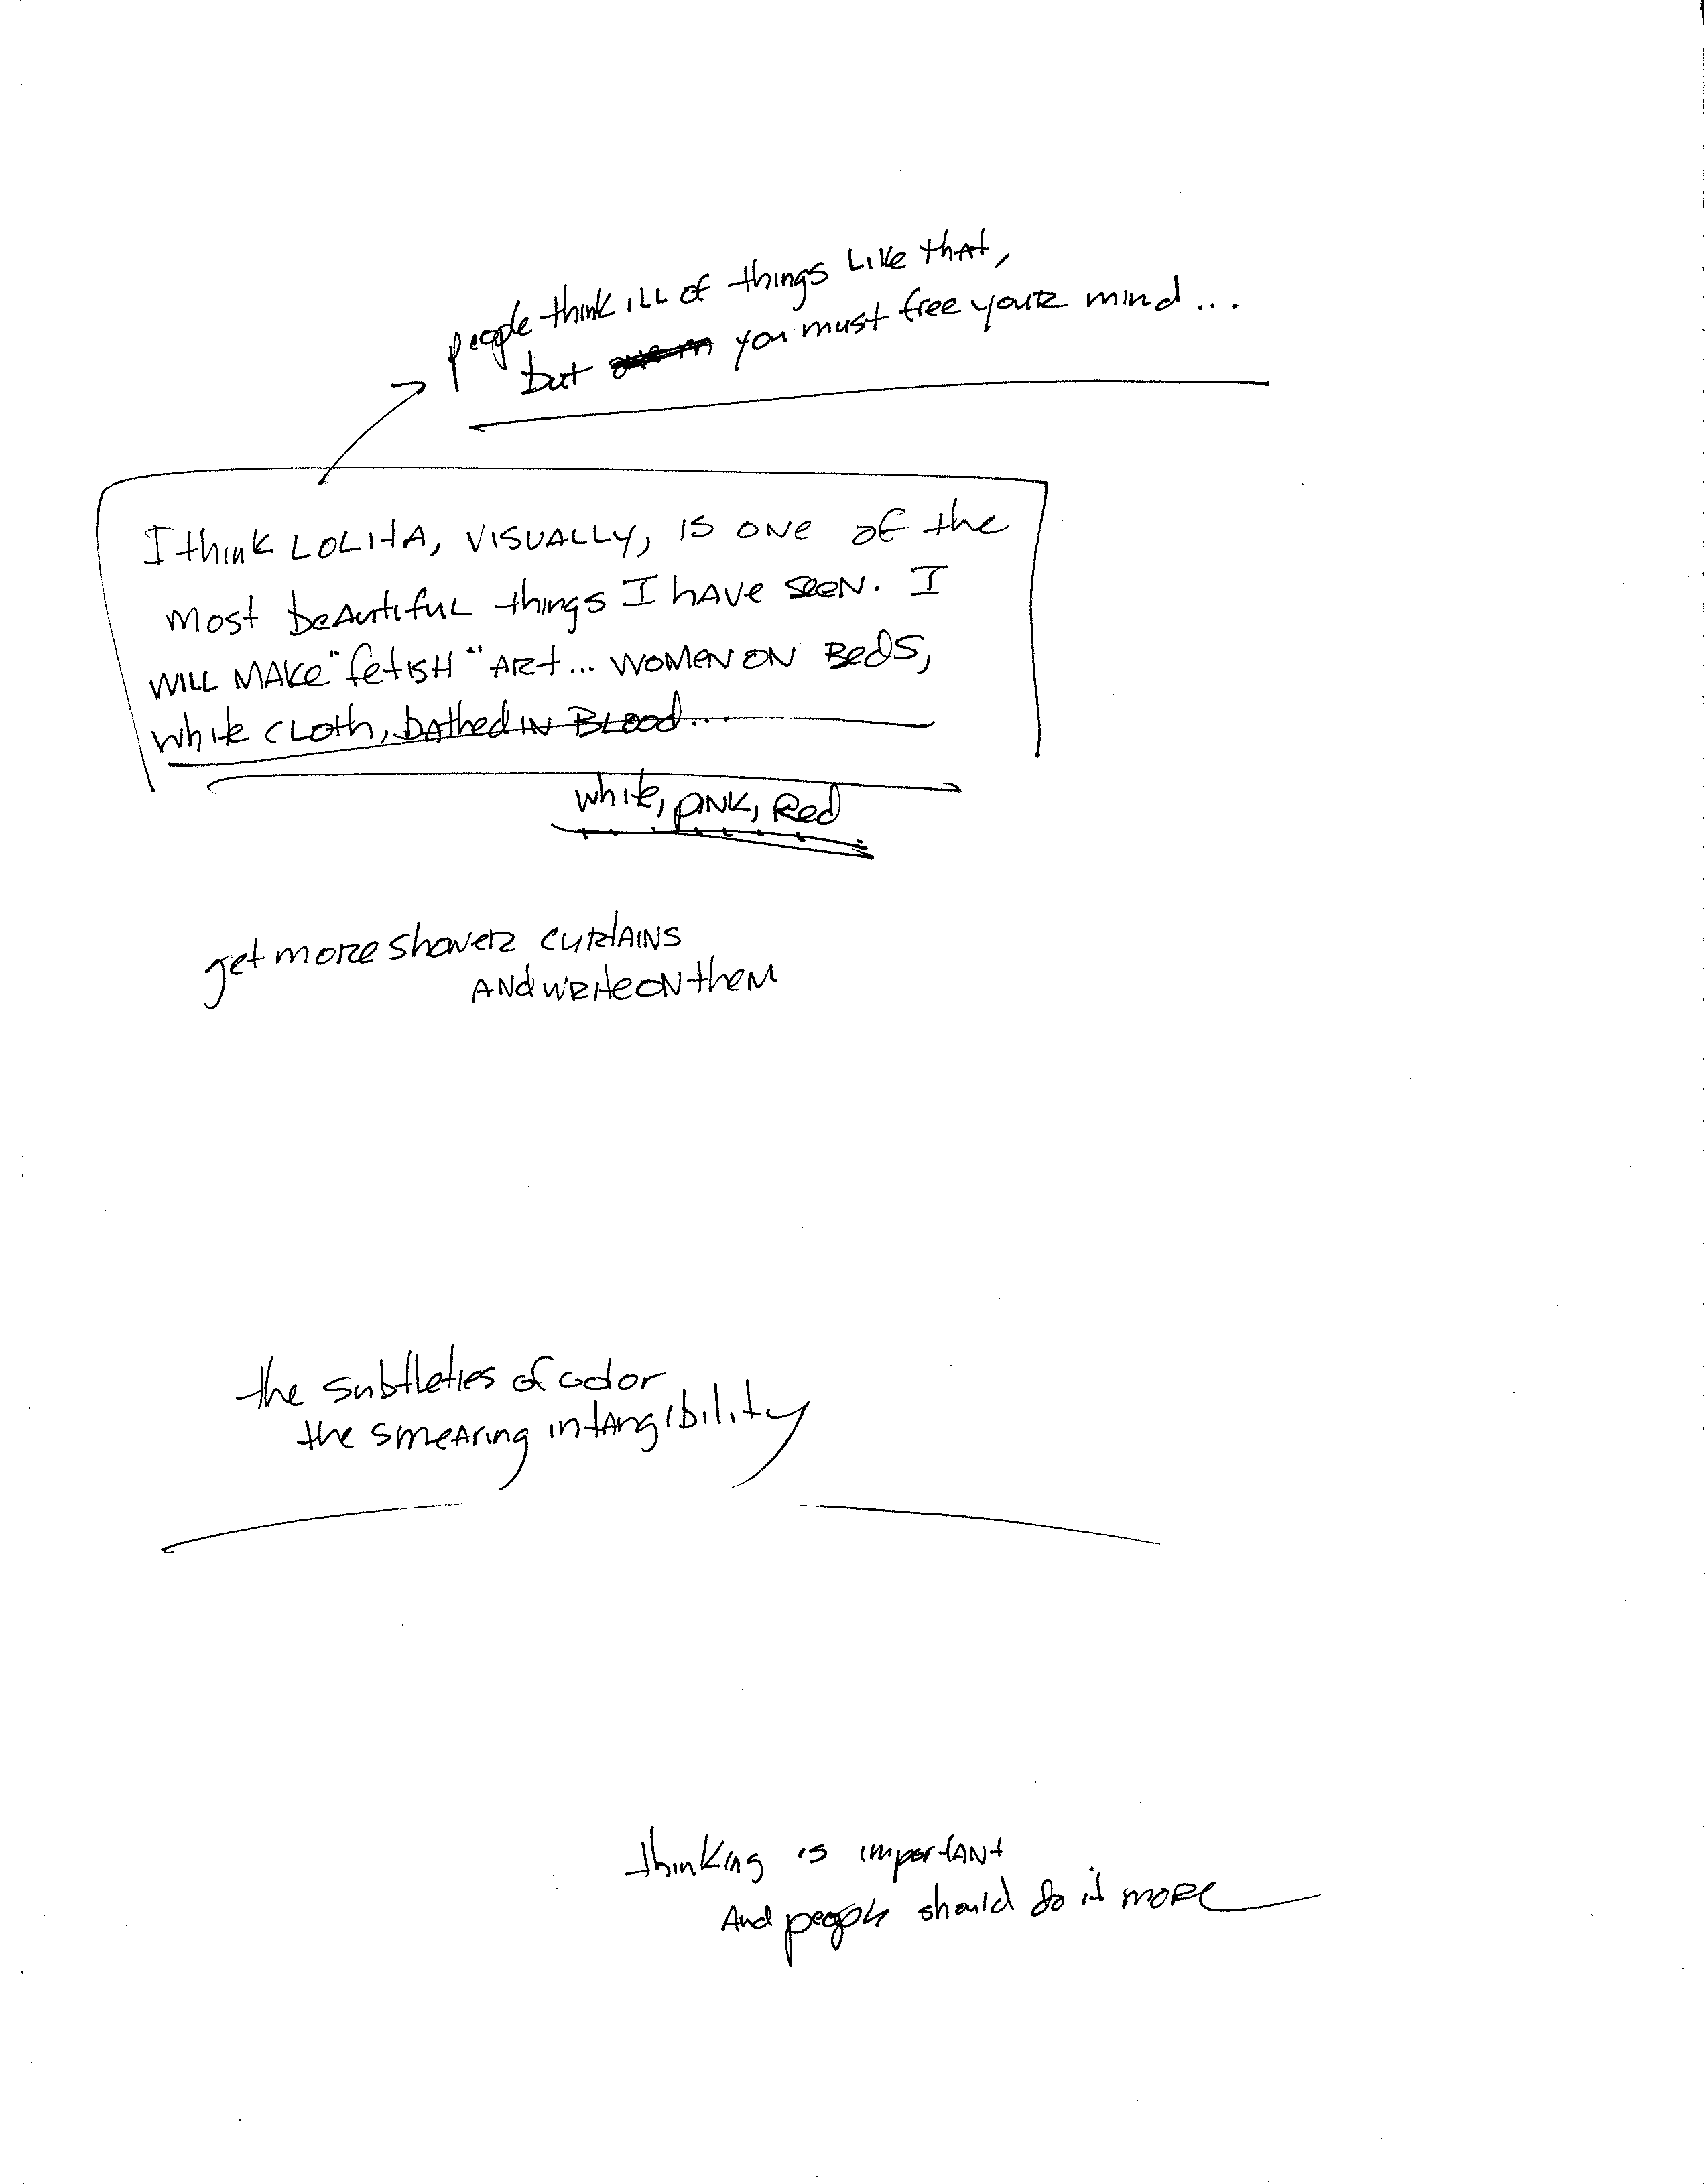 people think ill of things like that,
but you must free your mind...
I think LOLITA, VISUALLY, IS ONE of the
most beautiful things I have seen. I
WILL MAKE "fetish" ART... WOMEN ON BEDS,
white CLOTH, bathed IN BLOOD...
white, PINK, Red
get more shower CURTAINS
AND WRITE ON them
the subtleties of color
the smearing intangibility
thinking is important
And people should do it more